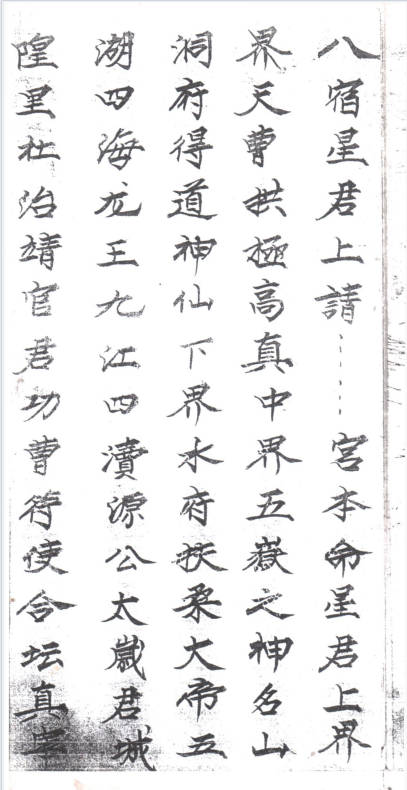 八宿星君上請……宮本命星君上界
界天曹拱極高真中界五嶽之神名山
洞府得道神仙下界水府扶桑大帝五
湖四海龙王九江四瀆源公太歲君城
隍里社治靖官君功曹符使合坛真宰